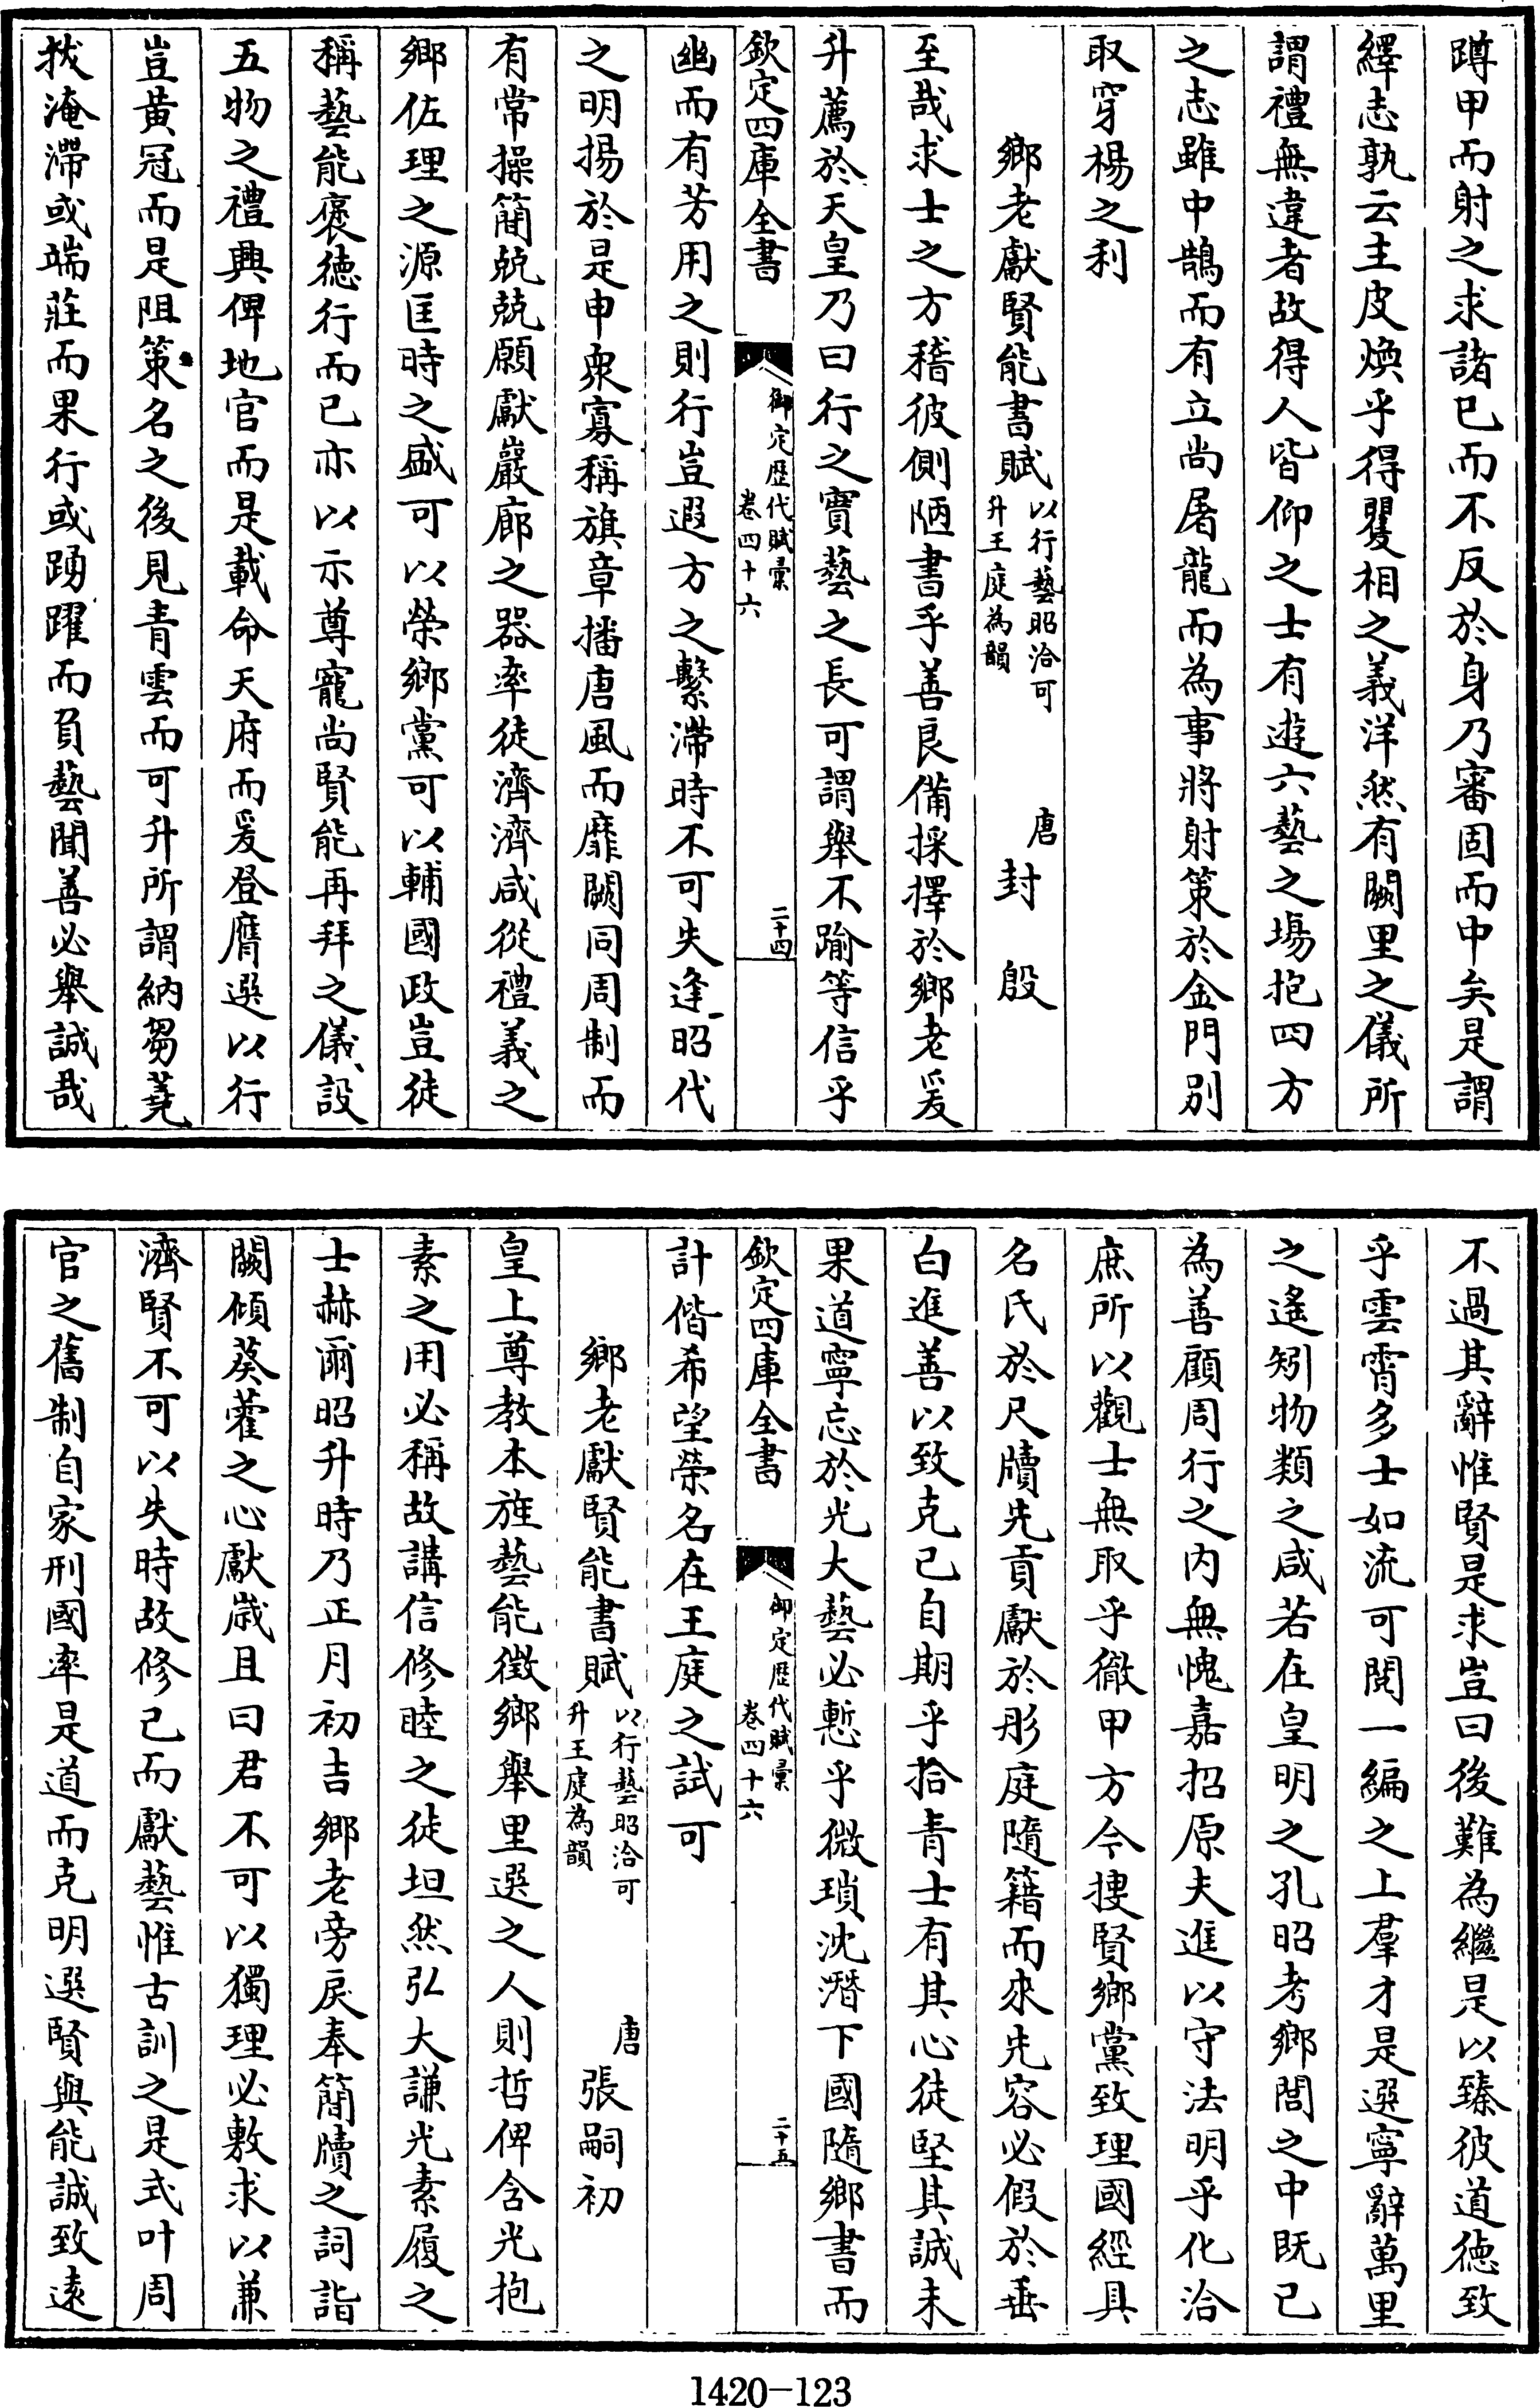 蹲甲而射之求諸已而不反於身乃審固而中矣是謂
繹志孰云主皮煥乎得矍相之義洋然有闕里之儀所
謂禮無違者故得人皆仰之士有遊六藝之場抱四方
之志雖中鵠而有立尚屠龍而為事將射策於金門別
取穿楊之利
鄉老獻賢能書賦以行藝昭洽可升王庭為韻 唐封殷
至哉求士之方稽彼側陋書乎善良備採擇於鄉老爰
升薦於天皇乃曰行之實藝之長可謂舉不踰等信乎
欽定四庫全書 御定歷代賦彙卷四十六 二十四
幽而有芳用之則行豈遐方之繫滯時不可失逢昭代
之明揚於是申衆寡稱旗章播唐風而靡闕同周制而
有常操簡兢兢願獻巖廊之器率徒濟濟咸從禮義之
鄉佐理之源匡時之盛可以榮鄉黨可以輔國政豈徒
稱藝能褒德行而已亦以示尊寵尚賢能再拜之儀設
五物之禮興俾地官而是載命天府而爰登膺選以行
豈黃冠而是阻策名之後見青雲而可升所謂納芻蕘
拔淹滯或端莊而果行或踴躍而負藝聞善必舉誠哉
不過其辭惟賢是求豈曰後難為繼是以臻彼道德致
乎雲霄多士如流可閱一編之上羣才是選寧辭萬里
之遙矧物類之咸若在皇明之孔昭考鄉閭之中既已
為善顧周行之內無愧嘉招原夫進以守法明乎化洽
庶所以觀士無取乎徹甲方今捜賢鄉黨致理國經具
名氏於尺牘先貢獻於彤庭隨籍而來先容必假於垂
白進善以致克已自期乎拾青士有其心徒堅其誠未
果道寧忘於光大藝必慙乎微瑣沈潛下國隨鄉書而
欽定四庫全書 御定歷代賦彙卷四十六 二十五
計偕希望榮名在王庭之試可
鄉老獻賢能書賦以行藝昭洽可升王庭為韻 唐張嗣初
皇上尊教本旌藝能徵鄉舉里選之人則哲俾含光抱
素之用必稱故講信修睦之徒坦然弘大謙光素履之
士赫爾昭升時乃正月初吉鄉老旁戾奉簡牘之詞詣
闕傾葵藿之心獻歲且曰君不可以獨理必敷求以兼
濟賢不可以失時故修已而獻藝惟古訓之是式叶周
官之舊制自家刑國率是道而克明選賢與能誠致遠
1420-123